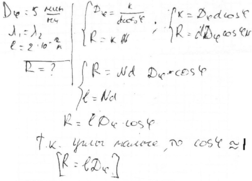 Dφ = 5 мин/мм
λ₁ = λ₂
l = 2·10⁻² м
R = ?
{ Dφ = k / dcosφ ; { k = Dφ d cosφ
{ R = kN { R = dDφ cosφ N
{ R = Nd Dφ * cosφ
{ l = Nd
R = l Dφ cosφ
т.к. углы малые, то cosφ ≈ 1
[R = lDφ]